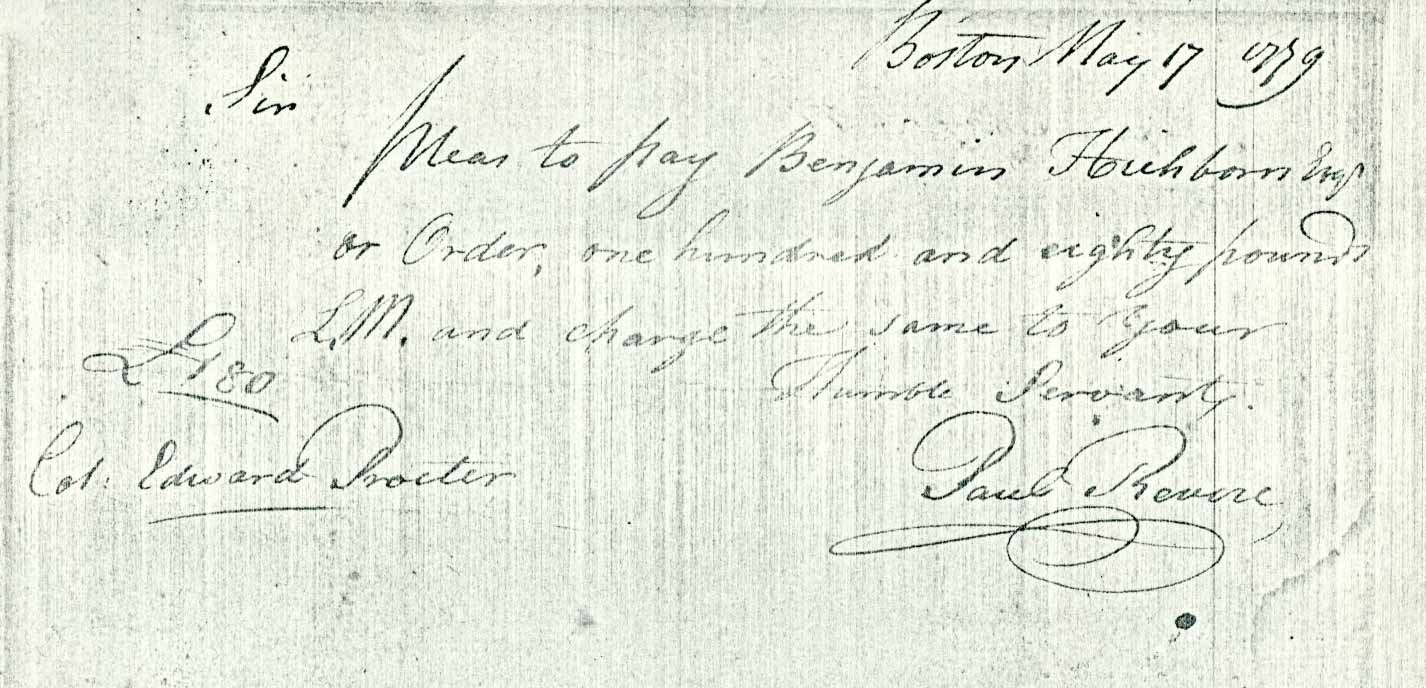 Boston May 17 1779
Sir
Pleas to pay Benjamin Hichborn Esqr
or Order, one hundred and eighty pounds
L.M. and charge the same to Your
£180 Humble Servant.
Col. Edward Procter Paul Revere